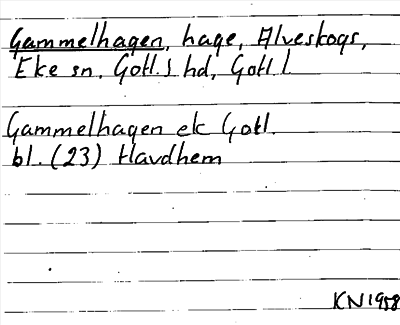 Gammelhagen, hage, Alveskogs,
Eke sn, Gotl. S hd, Gotl l.
Gammelhagen ek Gotl.
bl. (23) Havdhem
KN 1958